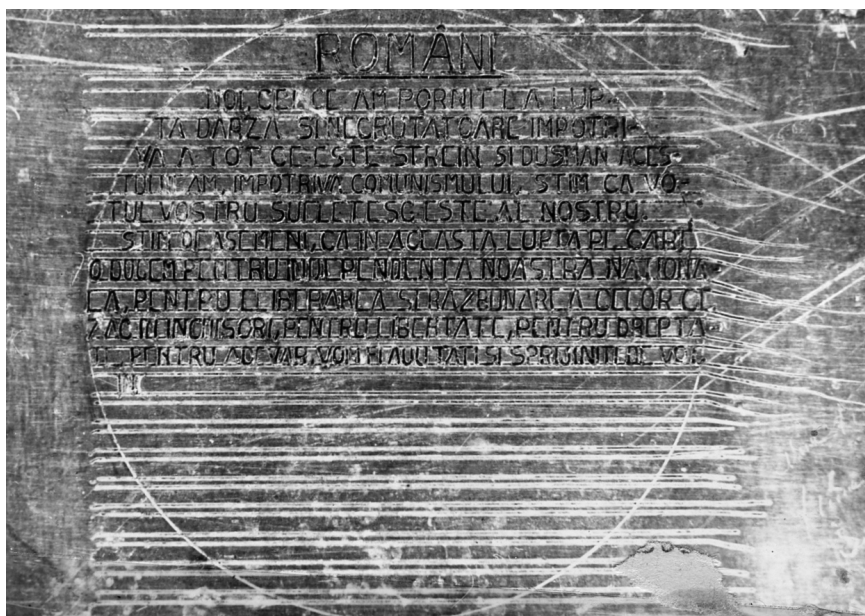 ROMÂNI
NOI, CEI CE AM PORNIT LA LUP-
TA DARZA SI NECRUTATOARE IMPOTRI-
VA A TOT CE ESTE STREIN SI DUSMAN ACES-
TUI NEAM, IMPOTRIVA COMUNISMULUI, STIM CA VO-
TUL VOSTRU SUFLETESC ESTE AL NOSTRU.
STIM DEASEMENI, CA IN ACEASTA LUPTA PE CARE
O DUCEM PENTRU INDEPENDENTA NOASTRA NATIONA-
LA, PENTRU ELIBERAREA SI RAZBUNAREA CELOR CE
ZAC IN INCHISORI, PENTRU LIBERTATE, PENTRU DREPTA-
TE, PENTRU ADEVAR, VOM FI AJUTATI SI SPRIJINITI DE VOI.